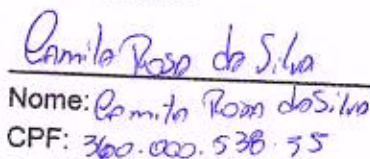 Camila Rosa da Silva
Nome: Camila Rosa da Silva
CPF: 360.000.538-35